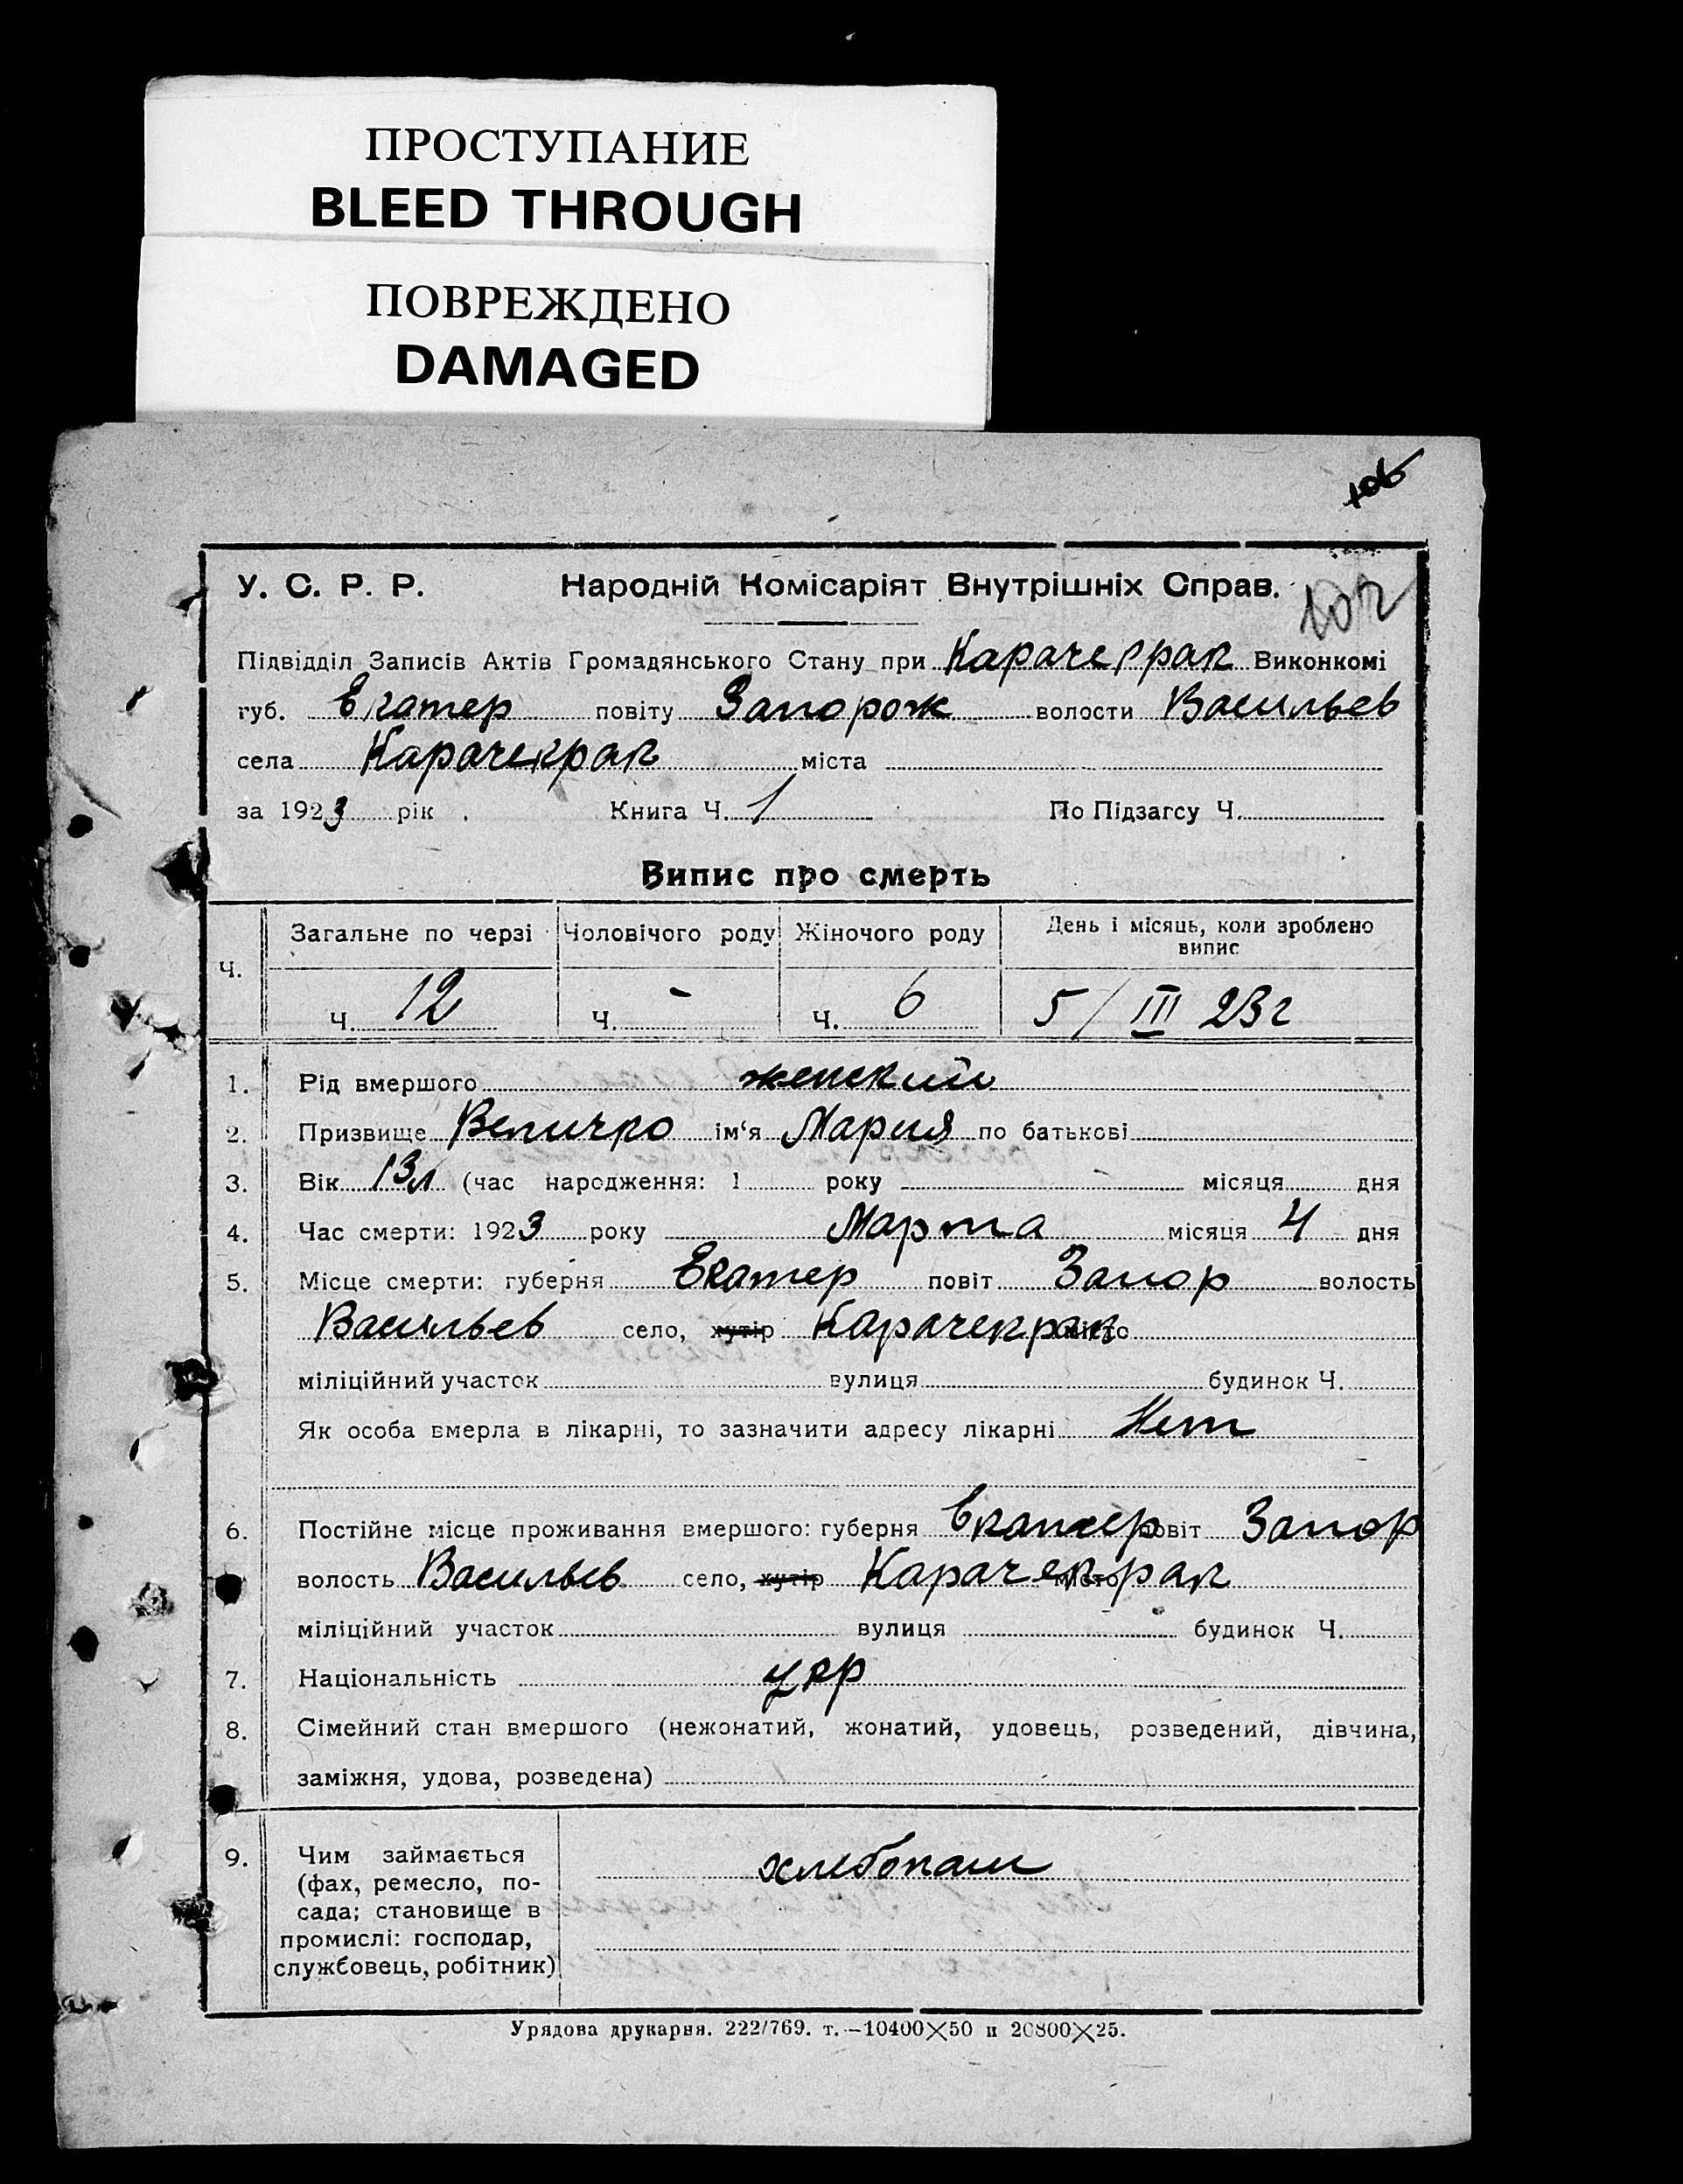 ПРОСТУПАНИЕ
BLEED THROUGH
ПОВРЕЖДЕНО
DAMAGED
106
У. С. Р. Р. Народній Комісаріят Внутрішніх Справ.
107
Підвідділ Записів Актів Громадянського Стану при Карачекрак Виконкомі
губ. Екатер повіту Запорож волости Васильев
села Карачекрак міста
за 1923 рік . Книга Ч. 1 По Підзагсу Ч.
Випис про смерть
Загальне по черзі Чоловічого роду Жіночого роду День і місяць, коли зроблено
випис
Ч.
Ч. 12 Ч. - Ч. 6 5/III 23г
1. Рід вмершого женский
2. Призвище Величко ім'я Мария по батькові
3. Вік 13л (час народження: 1 року місяця дня
4. Час смерти: 1923 року Марта місяця 4 дня
5. Місце смерти: губерня Екатер повіт Запор волость
Васильев село, хутір Карачекрак місто
міліційний участок вулиця будинок Ч.
Як особа вмерла в лікарні, то зазначити адресу лікарні Нет
6. Постійне місце проживання вмершого: губерня Екатер повіт Запор
волость Васильев село, хутір Карачекрак місто
міліційний участок вулиця будинок Ч.
7. Національність укр
8. Сімейний стан вмершого (нежонатий, жонатий, удовець, розведений, дівчина,
заміжня, удова, розведена)
9. Чим займається хлебопаш
(фах, ремесло, по-
сада; становище в
промислі: господар,
службовець, робітник)
Урядова друкарня. 222/769. т.—10400×50 и 20800×25.